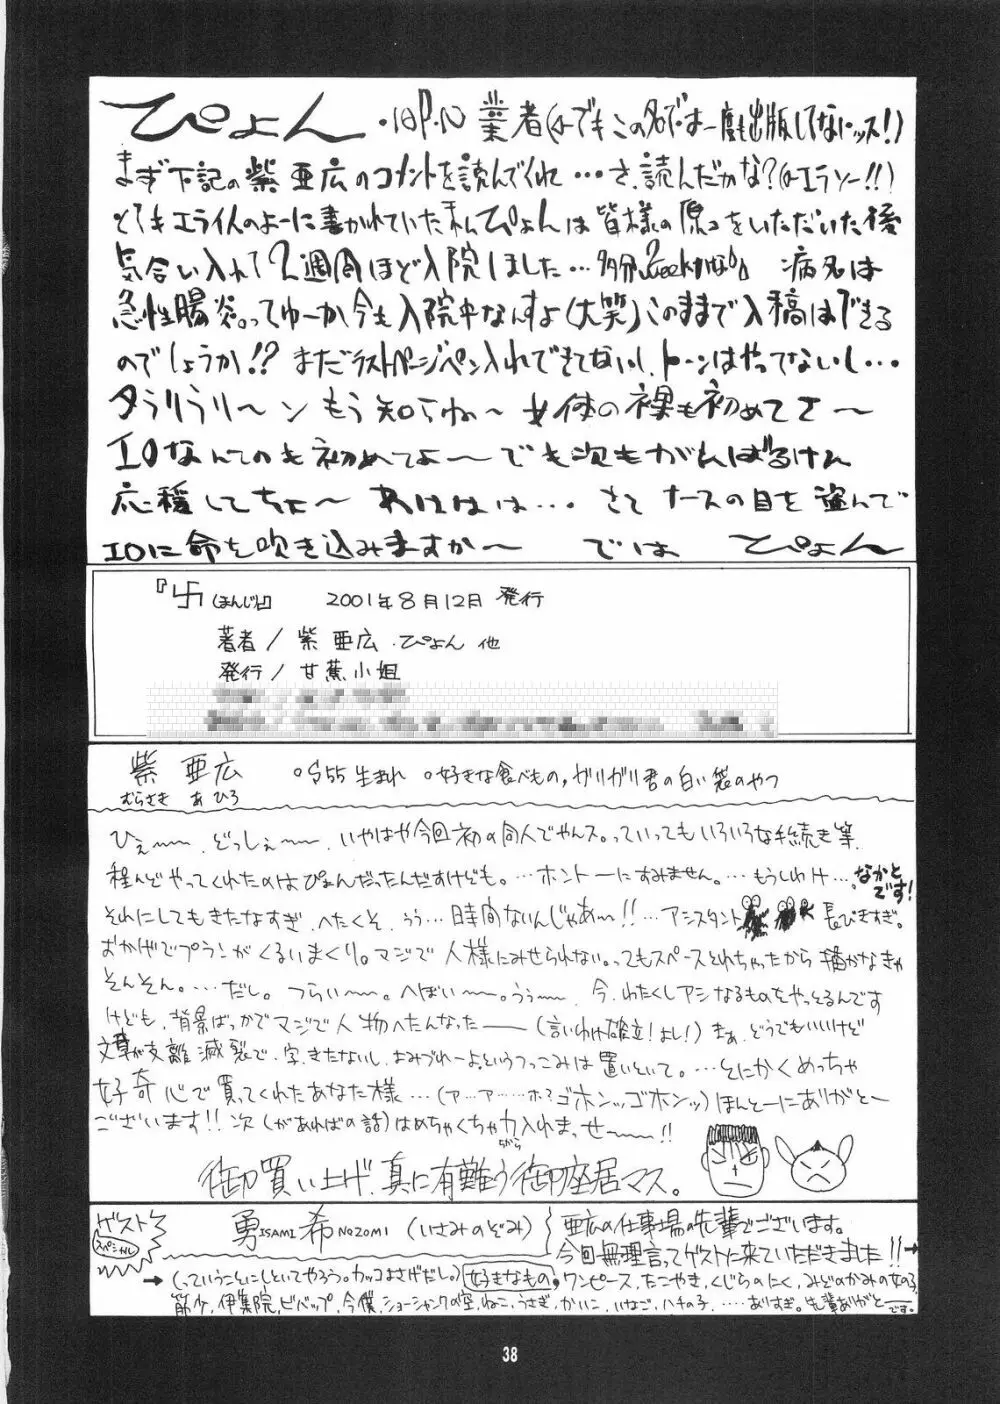 ぴょん ・元P.N 業者(←でもこの名では一度も出版してないッス!)
まず下記の紫亜広のコメントを読んでくれ…さ、読んだかな?(←エラソー!!)
とてもエライ人のよーに書かれていた私ぴょんは皆様の原コをいただいた後
気合い入れて2週間ほど入院しました…多分2weekかな。 病名は
急性腸炎。ってゆーか今も入院中なんすよ(大笑)このままで入稿はできる
のでしょうか!? まだラストページペン入れできてないし、トーンはやってないし…
タラリラリ〜ン もう知らね〜 女体の裸も初めてさ〜
エロなんてのも初めてよ〜 でも次もがんばるけん
応援してちょ〜 あははは… さて ナースの目を盗んで
エロに命を吹き込みますか〜 では ぴょん
『卐(まんじ)』 2001年8月12日 発行
著者/紫 亜広・ぴょん 他
発行/甘蕉小姐
紫 亜広 ○S55生まれ ○好きな食べもの,ガリガリ君の白い袋のやつ
むらさき あひろ
ひぇ〜〜、どっしぇ〜〜、いやはや今回初の同人でやんス。っていってもいろいろな手続き等、
程んどやってくれたのはぴょんだったんだすけども。…ホントーにすみません。…もうしわけ…なかとです!
それにしてもきたなすぎ、へたくそ、うぅ…時間ないんじゃあ〜!!…アシスタント 長びきすぎ。
おかげでプランがくるいまくり。マジで人様にみせられない。ってもスペースとれちゃったから描かなきゃ
そんそん。…だし。つらい〜〜。へぼい〜〜。うぅ〜〜、今、わたくしアシなるものをやっとるんです
けども、背景ばっかでマジで人物へたんなった——(言いわけ確立!よし!)まぁ、どうでもいいけど
文章が支離滅裂で、字、きたないし、よみづれーよというつっこみは置いといて。…とにかくめっちゃ
好奇心で買ってくれたあなた様…(ア…ア……ホ?ゴホンッゴホンッ)ほんとーにありがとー
ございます!!次(があればの話)はめちゃくちゃ力入れますせ〜〜!!
ながら
御買い上げ、真に有難う御座居マス。
ゲスト スペシャル 勇ISAMI 希NOZOMI (いさみのぞみ) 亜広の仕事場の先輩でございます。
今回無理言ってゲストに来ていただきました!!→
→(っていうことにしといてやろう。カッコよさげだし。)好きなもの,ワンピース、たこやき、くじらのにく、みどりのかみの女の子,
筋少、伊集院、ビバップ、今僕、ショーシャンクの空、ねこ、うさぎ、かいこ、いなご、ハチの子、……ありすぎ。先輩ありがとーです。
38